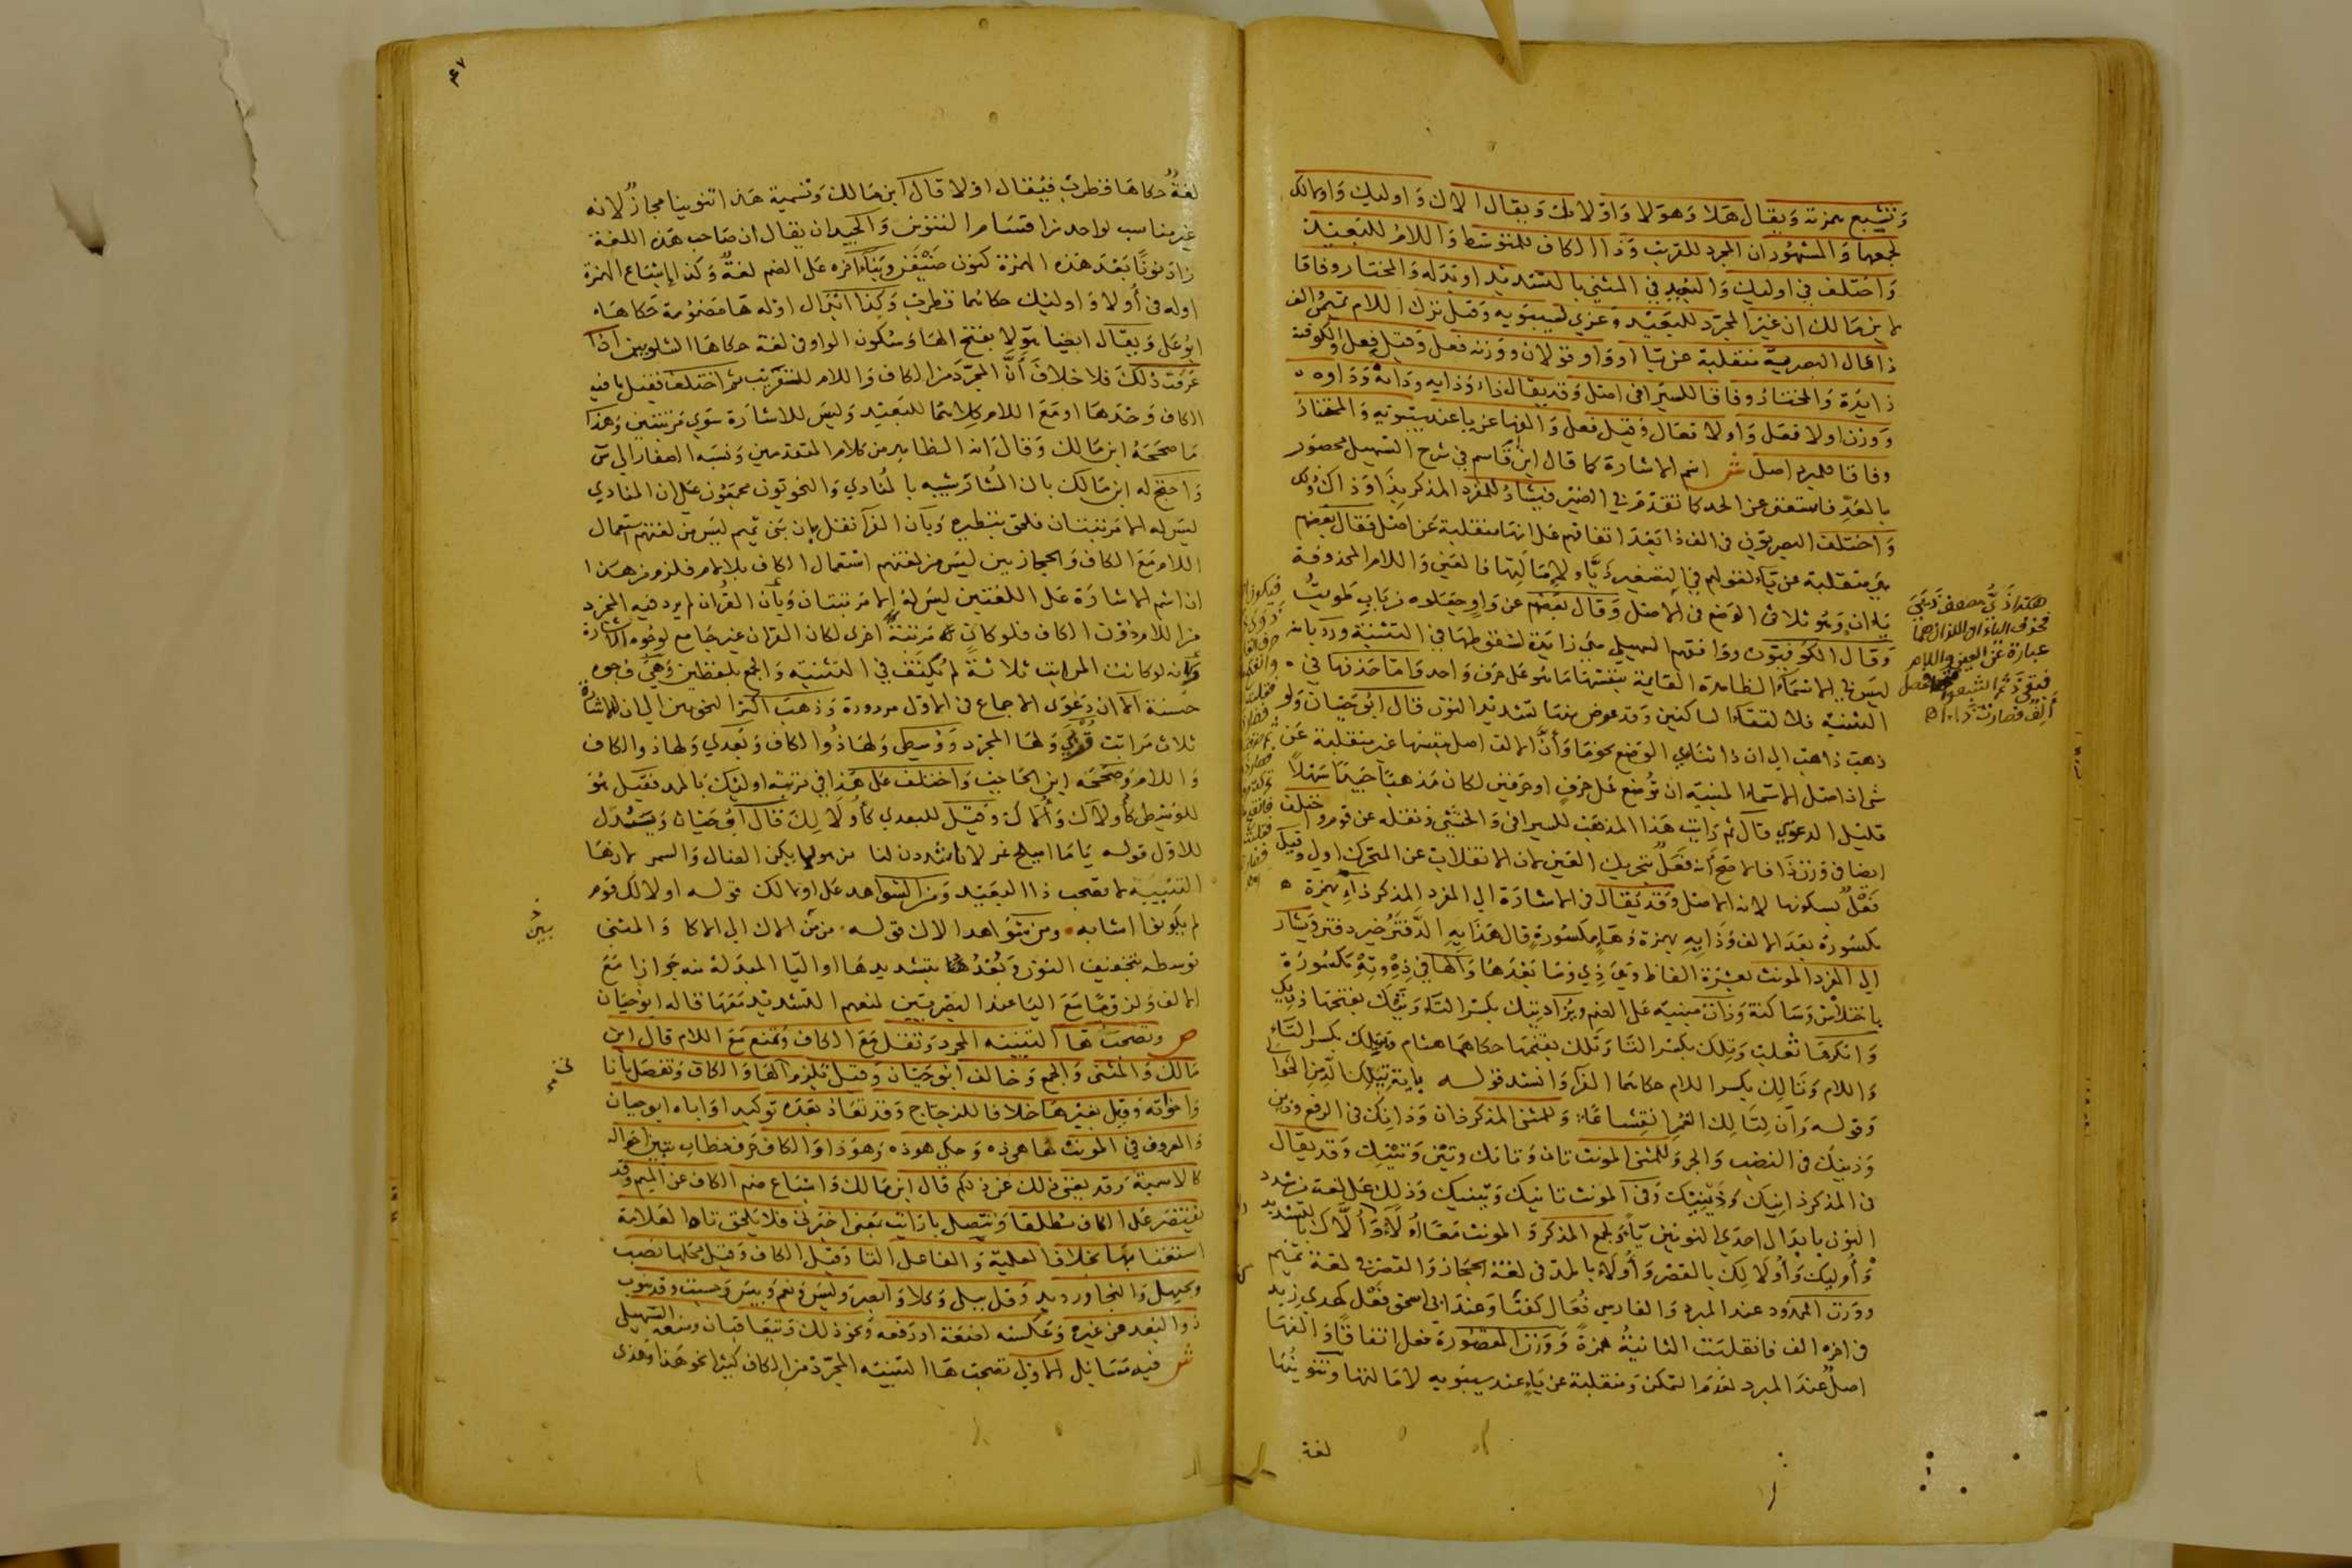 وتشبع بهمزته ويقال هلا وهولا واولائك ويقال الاك واوليك واولالك
لجمعها والمشهور ان المجرد للقريب وذا الكاف للمتوسط واللام للبعيد
واختلف في اوليك والبعيد في المثنى بالتشديد او بدله والمختار وفاقا
لابن مالك ان غير المجرد للبعيد وعزي لسيبويه وقيل ترك اللام تميم الف
ذا قال البصرية منقلبة عن يا او واو قولان ووزنه فعل وقيل فعل والكوفية
زايدة والمختار وفاقا للسيرافي اصل وقد يقال ذاء وذايه وذانه وذاوه
ووزن اولا فعل واولا فعال وقيل فعل والفها عن يا عند سيبويه والمختار
وفاقا للمبرد اصل ش اسم الاشارة كما قال ابن قاسم في شرح التسهيل محصور
بالعد فاستغنى عن الحد كما تقدم في الضمير فيشار للمفرد المذكر بذا وذاك
واختلف البصريون في الف ذا بعد اتفاقهم على انها منقلبة عن اصل فقال بعضهم
هي منقلبة عن ياء لقولهم في التصغير ذيا ولامالتها فالعين واللام المحذوفة
ياءان وهو ثلاثي الوضع في الاصل وقال بعضهم عن واو وجعلوه من باب طويت
وقال الكوفيون ووافقهم السهيلي هي زايدة لسقوطها في التثنية ورد بانه
ليس في الاسماء الظاهرة القايمة بنفسها ما هو على حرف واحد واما حذفها في
التثنية فلالتقاء الساكنين وقد عوض منها تشديد النون قال ابو حيان ولو
ذهب ذاهب الى ان ذا ثنائي الوضع نحو ما وان الالف اصل بنفسها غير منقلبة عن
شي اذ اصل الاسماء المبنية ان توضع على حرف او حرفين لكان مذهبا جيدا سهلا
قليل الدعوى قال ثم رايت هذا المذهب للسيرافي والخشني ونقله عن قوم واختلف
ايضا في وزن ذا فالاصح انه فعل بتحريك العين لان الانقلاب عن المتحرك اول وقيل
فعل بسكونها لانه الاصل وقد يقال في الاشارة الى المفرد المذكر ذاء بهمزة
مكسورة بعد الالف وذايه بهمزة وهاء مكسورة قال هذايه الدفتر خير دفتر ويشار
الى المفرد المونث بعشرة الفاظ وهي ذي وما بعدها والها في ذه وته مكسورة
باختلاس وساكنة وذات مبنية على الضم ويزاد تيك بكسر التاء وتيك بفتحها وذيك
وانكرها ثعلب وتلك بكسر التا وتلك بفتحها حكاهما هشام وتيلك بكسر التاء
واللام وتالك بكسر اللام حكاهما الفرا وانشد قوله
وقوله وان لتالك الغمر انقشاعا وللمثنى المذكر ذان وذانك في الرفع وذين
وذينك في النصب والجر وللمثنى المونث تان وتانك وتين وتينك وقد يقال
في المذكر ذانيك وذينيك وفي المونث تانيك وتينيك وذلك على لغة من شدد
النون بابدال احدى النونين ياء ولجمع المذكر والمونث معا اولاء واولاك بالتشديد
واوليك واولالك بالقصر واولاء بالمد في لغة الحجاز والقصر في لغة تميم
ووزن الممدود عند المبرد والفارسي فعال كغثا وعند ابي اسحق فعل كهدى زيد
في اخره الف فانقلبت الثانية همزة ووزن المقصورة فعل اتفاقا والفها
اصل عند المبرد لعدم التمكن ومنقلبة عن ياء عند سيبويه لامالتها وتنوينها
لغة
٤٧
لغة حكاها قطرب فيقال اولا قال ابن مالك وتسمية هذا تنوينا مجاز لانه
غير مناسب لواحد من اقسام التنوين والجيد ان يقال ان صاحب هذه اللغة
زاد نونا بعد هذه الهمزة كنون ضيفن وبناء اخره على الضم لغة وكذا اشباع الهمزة
اوله في اولا واوليك حكاهما قطرب وكذا ابدال اوله ها مضمومة حكاها
ابو علي ويقال ايضا هولا بفتح الها وسكون الواو في لغة حكاها الشلوبين اذا
عرفت ذلك فلا خلاف ان المجرد من الكاف واللام للقريب ثم اختلف فقيل ما فيه
الكاف وحدها او مع اللام كلاهما للبعيد وليس للاشارة سوى مرتبتين وهذا
ما صححه ابن مالك وقال انه الظاهر من كلام المتقدمين ونسبه الصفار الى س
واحتج له ابن مالك بان المشار شبيه بالمنادي والنحويون مجمعون على ان المنادي
ليس له الا مرتبتان فلحق بنظيره وبان الفرا نقل بان بني تميم ليس من لغتهم استعمال
اللام مع الكاف والحجازيين ليس من لغتهم استعمال الكاف بلا لام فلزم من هذا
ان اسم الاشارة على اللغتين ليس له الا مرتبتان وبان القران لم يرد فيه المجرد
من اللام دون الكاف فلو كانت مرتبة اخرى لكان القران غير جامع لوجوه الاشارة
وبانه لو كانت المراتب ثلاثة لم يكتف في التثنية والجمع بلفظين وهي وجوه
حسنة الا ان دعوى الاجماع في الاول مردودة وذهب اكثر النحويين الى ان للاشارة
ثلاث مراتب قربى ولها المجرد ووسطى ولها ذو الكاف وبعدى ولها ذو الكاف
واللام وصححه ابن الحاجب واختلف على هذا في مرتبة اوليك بالمد فقيل هو
للوسطى كاولاك والاك وقيل للبعدى كاولالك قال ابو حيان ويستدل
للاول قوله ياما اميلح غزلانا شدن لنا من هوليا يكن الضال والسمر لان ها
التنبيه لا تصحب ذا البعيد ومن الشواهد على اولالك قوله اولالك قوم
لم يكونوا اشابه ومن شواهد الاك قوله من بين الاك الى الاكا والمثنى
توسطه بتخفيف النون وبعده بتشديدها او اليا المبدلة منه جوازا مع
الالف ولزوما مع اليا عند البصريين لمنعهم التشديد معها قاله ابو حيان
ص وتصحب ها التنبيه المجرد وتقل مع الكاف وتمنع مع اللام قال ابن
مالك والمثنى والجمع وخالف ابو حيان وقيل تلزم الها والكاف وتفصل بانا
واخواته وقيل بغيرها خلافا للزجاج وقد تعاد بعده توكيدا واباه ابو حيان
والمعروف في المونث ها هي ذه وحكي هوذه وهوذا والكاف حرف خطاب تبين احواله
كالاسمية وقد يغني ذلك عن ذلكم قال ابن مالك واشباع ضم الكاف عن الميم وقد
يقتصر على الكاف مطلقا وتتصل بارايت بمعنى اخبرني فلا يلحق تاها لعلامة
استغنا بها بخلاف العلمية والفاعل التا وقيل الكاف وقيل محلها نصب
وبحيهل والنجا ورويد وقل ببلى وكلا وابصر وليس ونعم وبيس وحسبت وقد ينوب
ذو البعد عن غيره وعكسه لعظمة او رفعه ونحو ذلك وتتعاقبان ومنعه السهيلي
ش فيه مسائل الاولى تصحب ها التنبيه المجرد من الكاف كثيرا نحو هذا وهذى